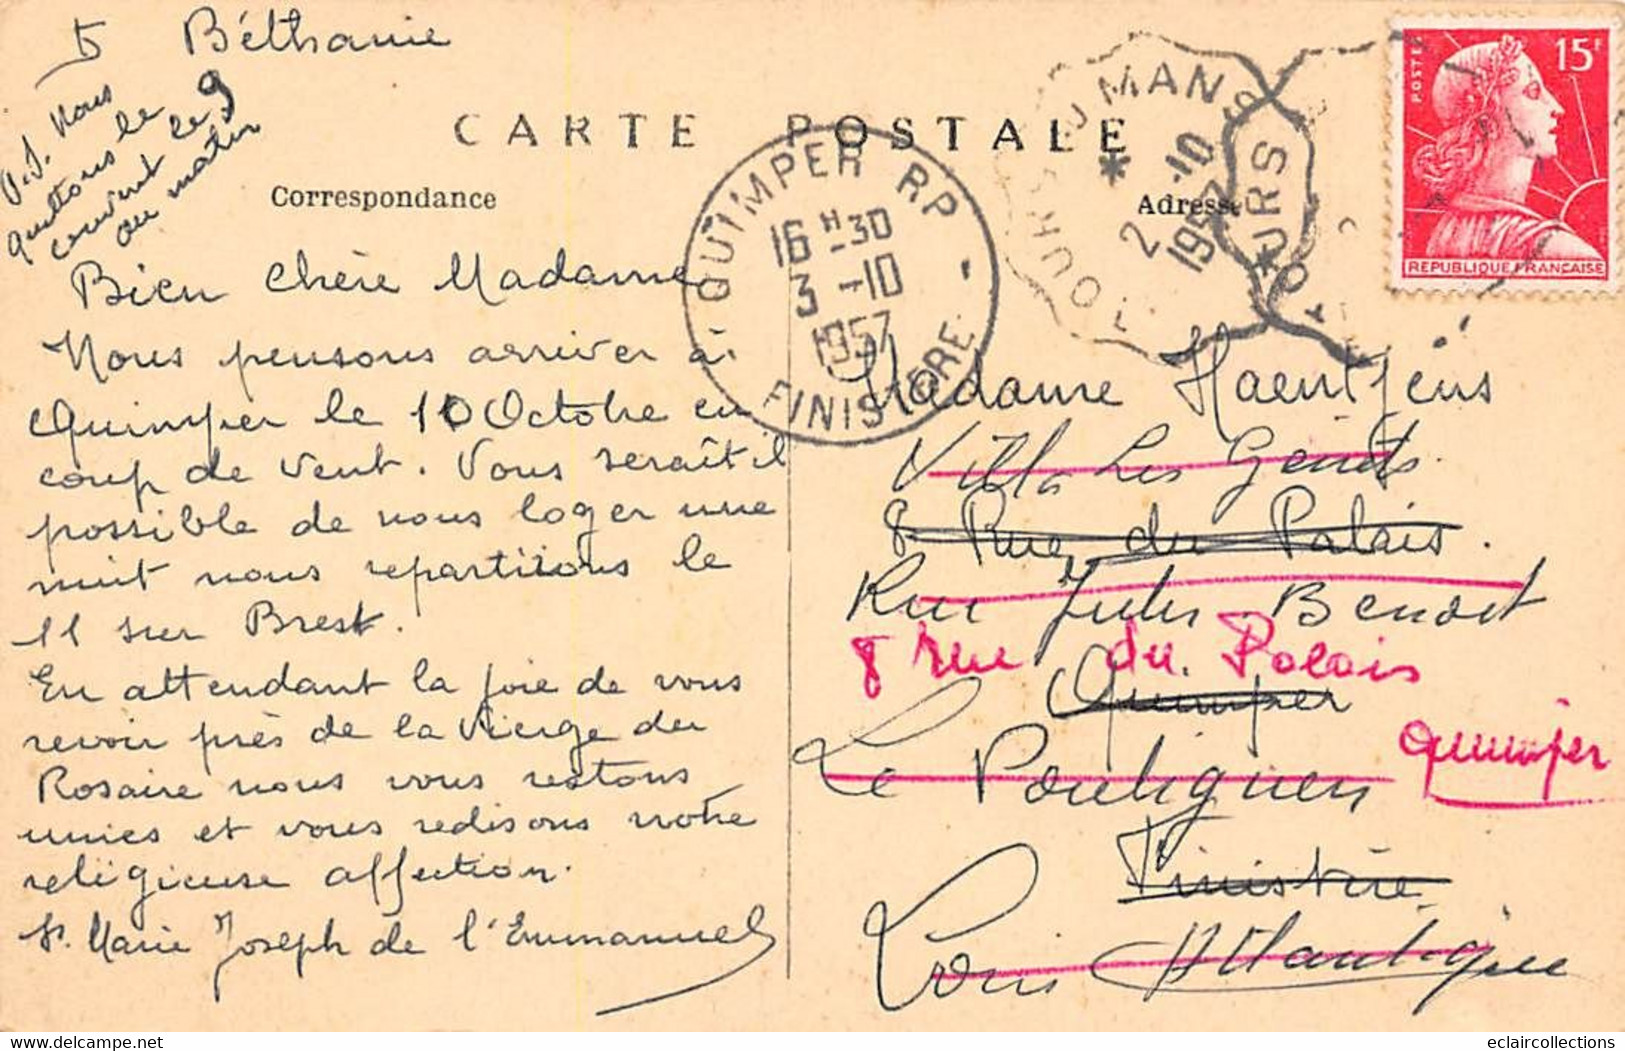 Béthanie
P.S. Nous
quittons le
couvent le 9
au matin
CARTE POSTALE
Correspondance
Adresse
Bien chère Madame
Nous pensons arriver à
Quimper le 10 Octobre en
coup de vent. Vous seraît il
possible de nous loger une
nuit nous repartirons le
11 sur Brest.
En attendant la joie de vous
revoir près de la Vierge du
Rosaire nous vous restons
unies et vous redisons notre
religieuse affection.
Sr. Marie Joseph de l'Emmanuel
QUIMPER RP
16 H -30
3 -10
1957
FINISTERE
MANS
TOURS
2 -10
1957
POSTES
15F
REPUBLIQUE FRANCAISE
Madame Haentjens
Villa Les Genêts
8 Rue du Palais.
Rue Jules Benoit
8 rue du Palais
Quimper
Quimper
Le Pouliguen
Finistère
Loire Atlantique
eclaircollections